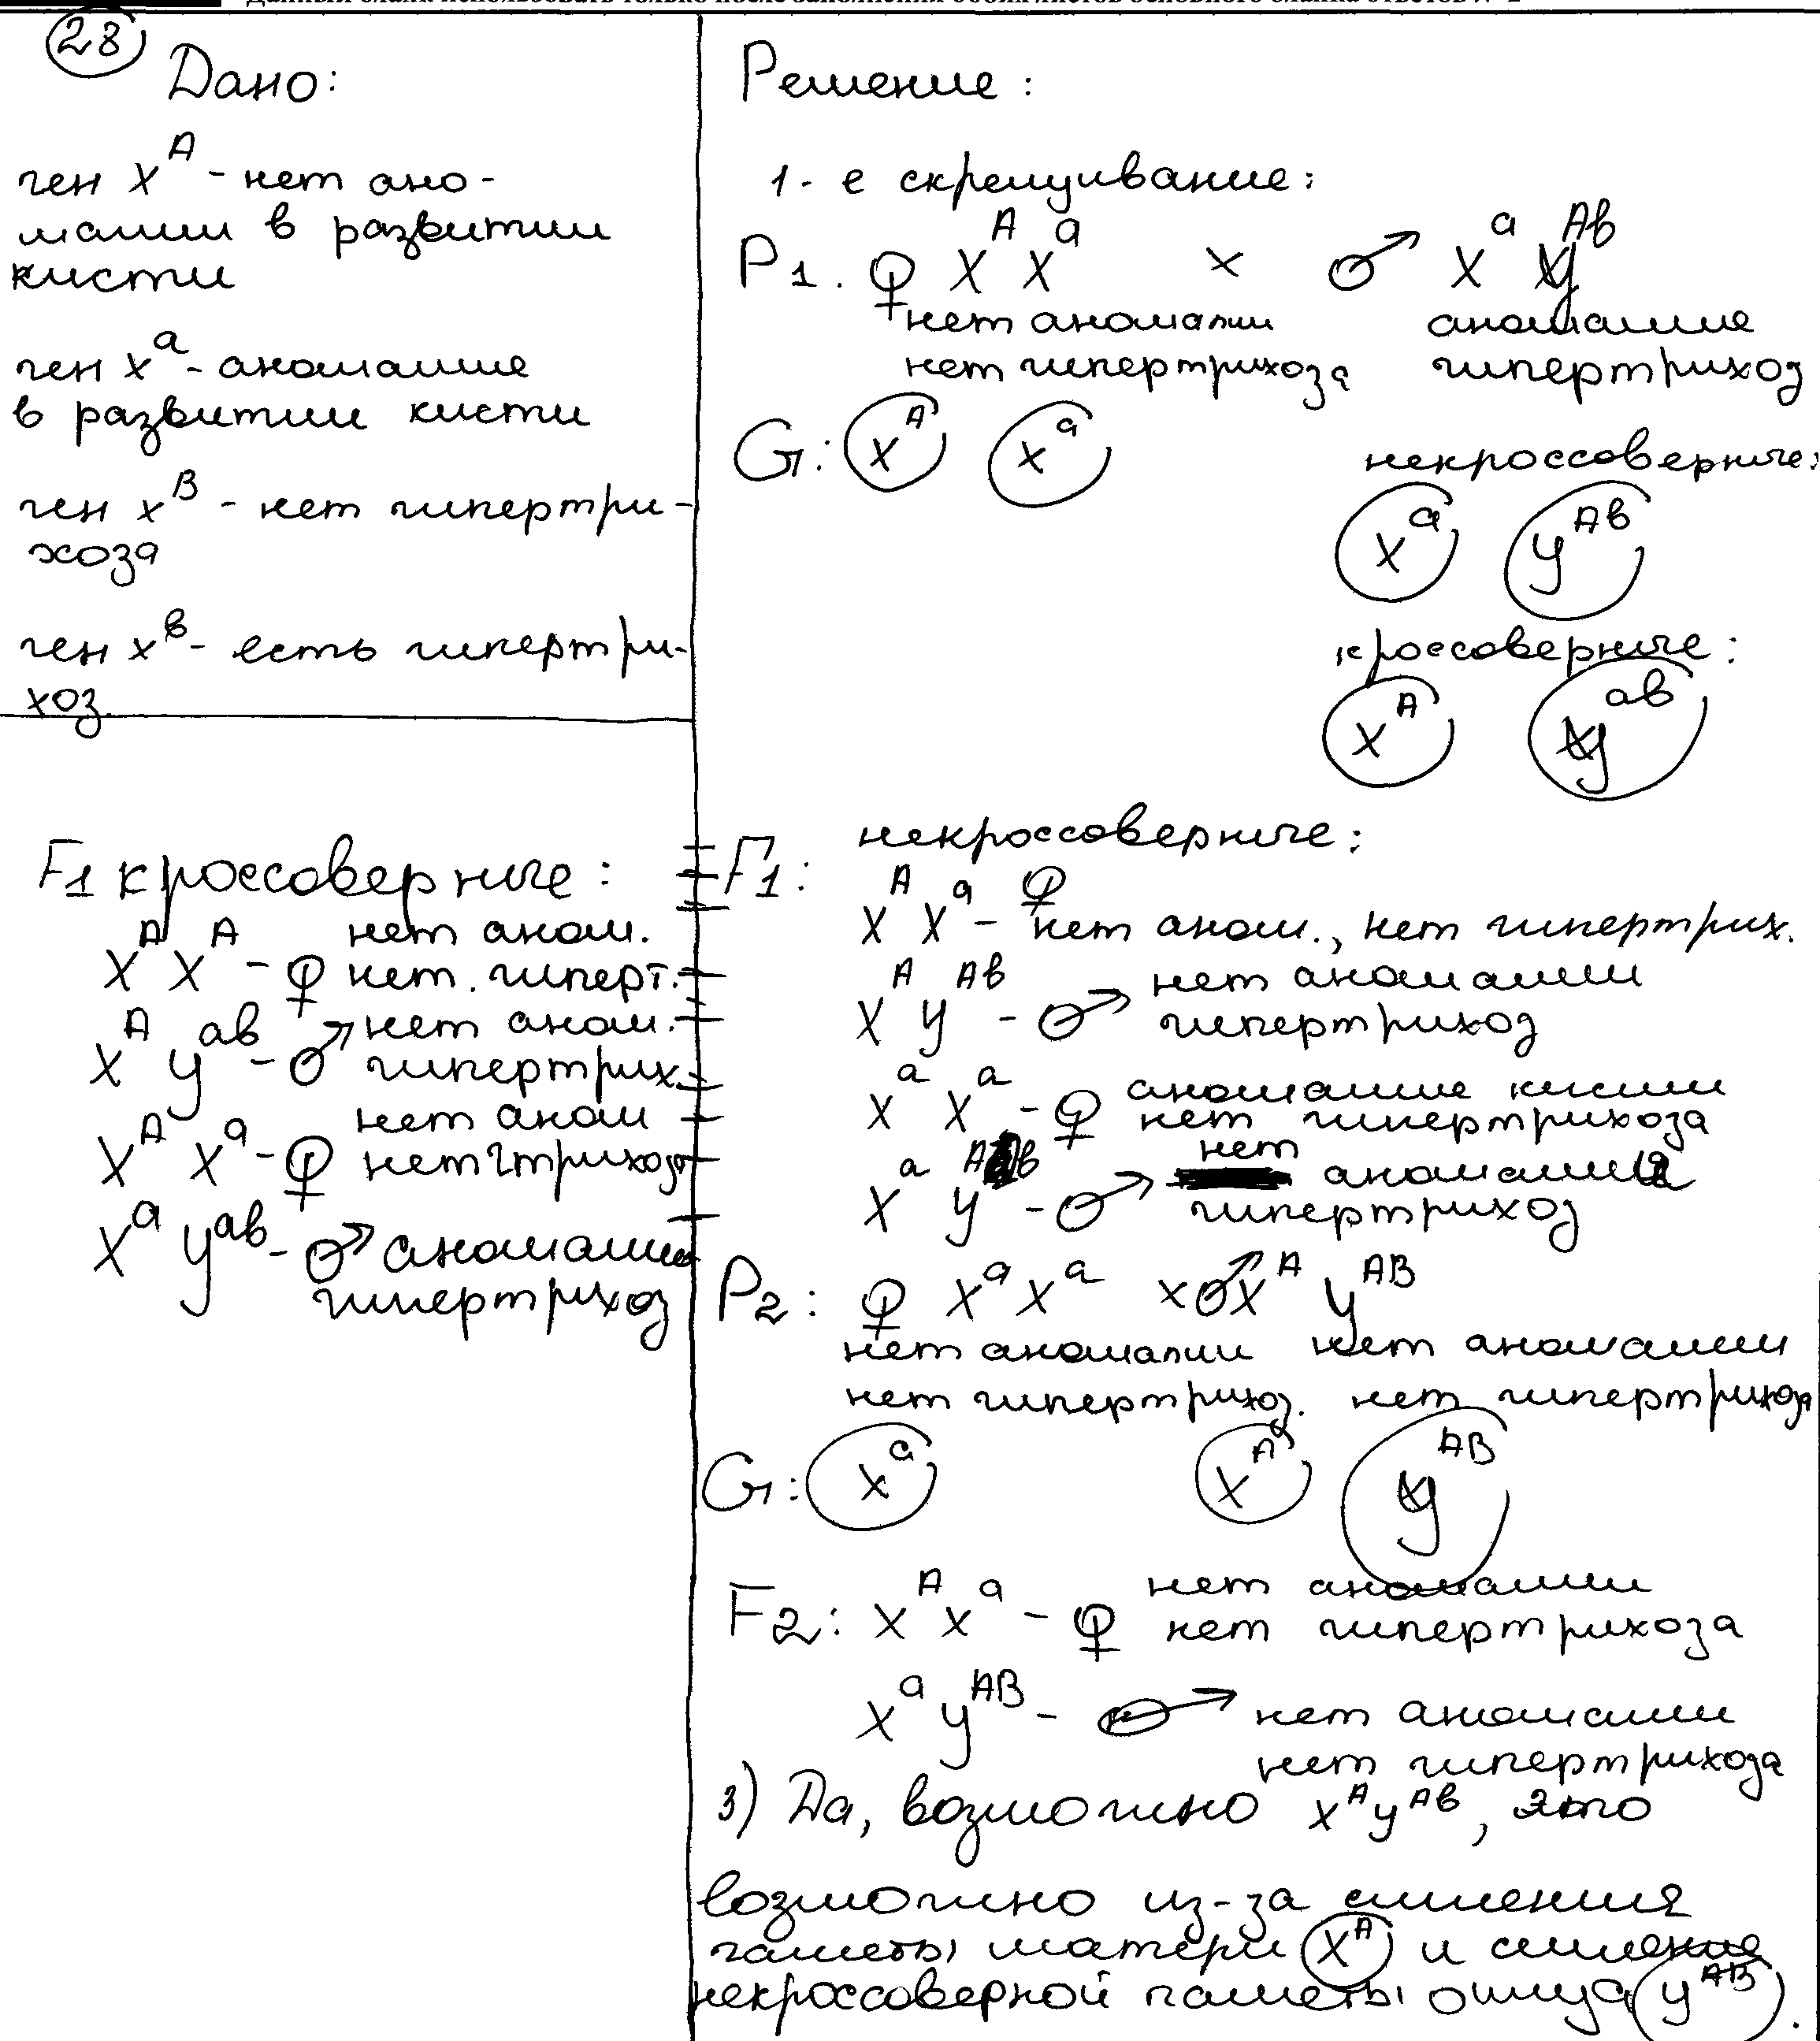 28
Дано:
ген X^A - нет ано-
малии в развитии
кисти
ген X^a - аномалие
в развитии кисти
ген X^B - нет гипертри-
хоза
ген X^в - есть гипертри-
хоз.
F1 кроссоверные:
X^A X^A - ♀ нет аном.
нет. гиперт.
X^A y^ав - ♂ нет аном.
гипертрих.
X^A X^a - ♀ нет аном
нет гтрихоза
X^a y^ав - ♂ аномалии
гипертрихоз
Решение:
1-е скрещивание:
P1. ♀ X^A X^a × ♂ X^a y^Aв
нет аномалии аномалие
нет гипертрихоза гипертрихоз
G: X^A X^a
некроссоверные:
X^a y^Aв
кроссоверные:
X^A y^ав
некроссоверные:
F1:
X^A X^a - ♀ нет аном., нет гипертрих.
X^A y^Aв - ♂ нет аномалии
гипертрихоз
X^a X^a - ♀ аномалие кисти
нет гипертрихоза
X^a y^Aв - ♂ нет аномалия
гипертрихоз
P2: ♀ X^a X^a × ♂ X^A y^AB
нет аномалии нет аномалии
нет гипертрихоз. нет гипертрихоза
G: X^a X^A y^AB
F2: X^A X^a - ♀ нет аномалии
нет гипертрихоза
X^a y^AB - ♂ нет аномалии
нет гипертрихоза
3) Да, возможно X^A y^Aв, это
возможно из-за слиения
гаметы матери X^A и слиение
некроссоверной гаметы отца y^AB.